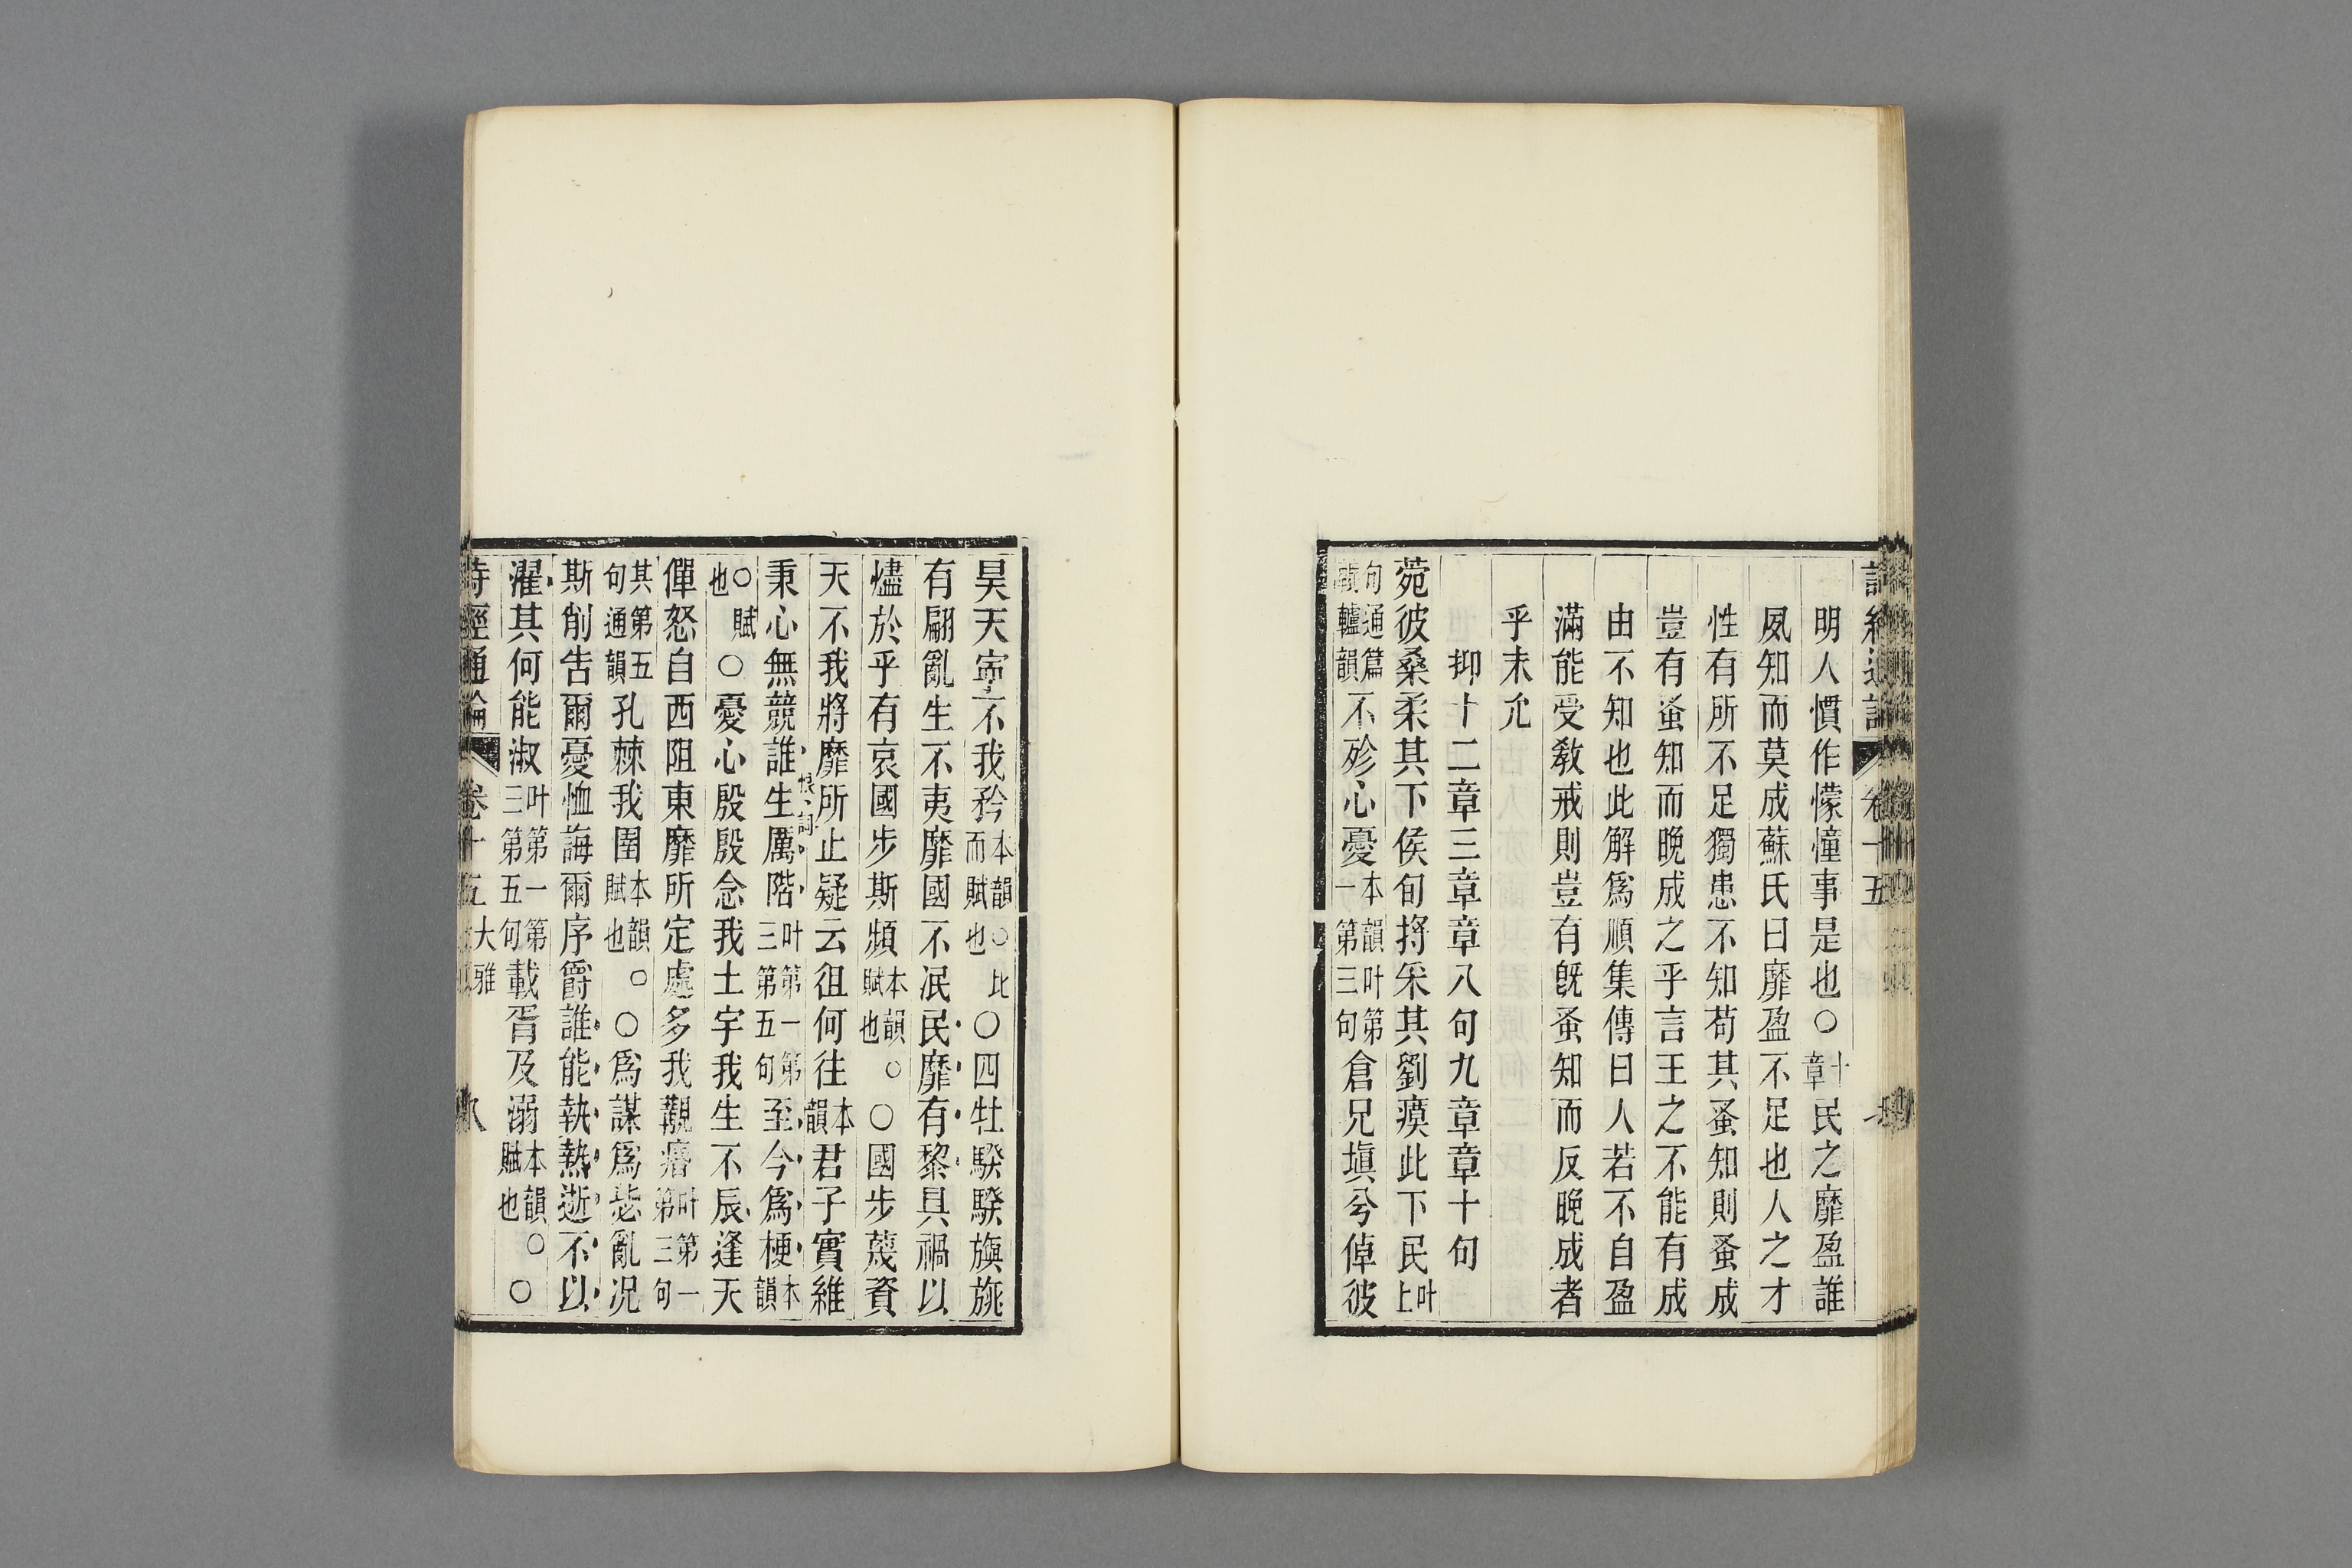 詩經通論 卷十五
明人慣作懞憧事是也〇十章民之靡盈誰
夙知而莫成蘇氏曰靡盈不足也人之才
性有所不足獨患不知苟其蚤知則蚤成
豈有蚤知而晚成之乎言王之不能有成
由不知也此解爲順集傳曰人若不自盈
滿能受敎戒則豈有旣蚤知而反晚成者
乎未允
抑十二章三章章八句九章章十句
菀彼桑柔其下侯旬捋采其劉瘼此下民叶上
句通篇轆韻不殄心憂本韻叶第一第三句倉兄塡兮倬彼
昊天寧不我矜本韻〇比而賦也〇四牡騤騤旟旐
有翩亂生不夷靡國不泯民靡有黎具禍以
燼於乎有哀國步斯頻本韻〇賦也〇國步蔑資
天不我將靡所止疑云徂何往本韻君子實維
秉心無競誰生厲階叶第一第三第五句至今爲梗本韻
恨詞
〇賦也〇憂心殷殷念我土宇我生不辰逢天
僤怒自西阻東靡所定處多我覯痻叶第一第三句
其第五句通韻孔棘我圉本韻〇賦也〇爲謀爲毖亂况
斯削吿爾憂恤誨爾序爵誰能執熱逝不以
濯其何能淑叶第一第三第五句載胥及溺本韻〇賦也〇
詩經通論 卷十五 大雅 八